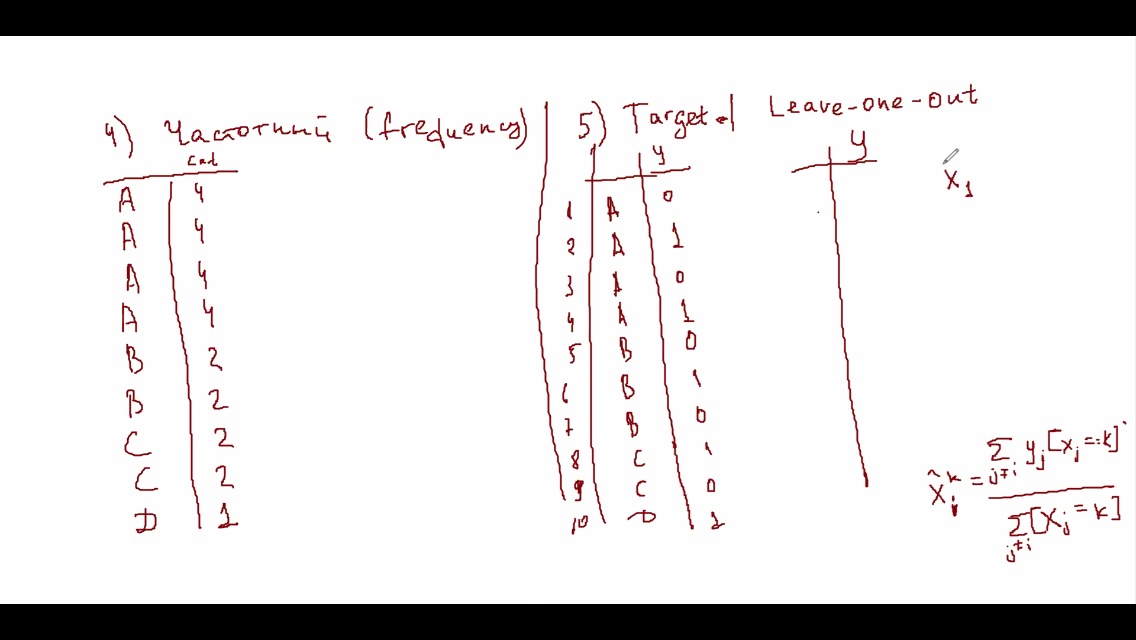 4) Частотный (frequency)
cnt
A 4
A 4
A 4
A 4
B 2
B 2
C 2
C 2
D 1
5) Target Leave-one-out
y
1 A 0
2 A 1
3 A 0
4 A 1
5 B 0
6 B 1
7 B 0
8 C 1
9 C 0
10 D 1
y
x₁
x̂ᵢᵏ = Σ_{j≠i} yⱼ[xⱼ = k] / Σ_{j≠i} [xⱼ = k]